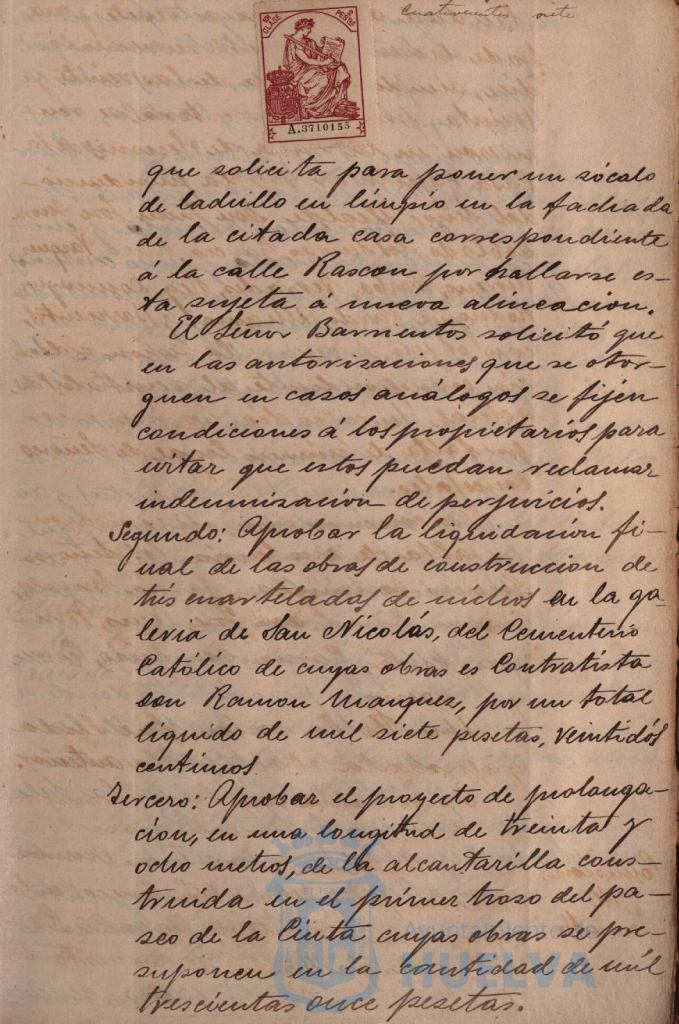 cuatrocientos siete
10ª CLASE 2 PESETAS
A.3710155
que solicita para poner un zócalo
de ladrillo en limpio en la fachada
de la citada casa correspondiente
á la calle Rascon por hallarse es-
ta sujeta á nueva alineacion.
El Señor Barrientos solicitó que
en las autorizaciones que se otor-
guen en casos análogos se fijen
condiciones á los propietarios para
evitar que estos puedan reclamar
indemnizacion de perjuicios.
Segundo: Aprobar la liquidación fi-
nal de las obras de construccion de
tres cuarteladas de nichos en la ga-
leria de San Nicolás, del Cementerio
Católico de cuyas obras es Contratista
don Ramon Marquez, por un total
liquido de mil siete pesetas, veintidós
centimos.
Tercero: Aprobar el proyecto de prolonga-
cion, en una longitud de treinta y
ocho metros, de la alcantarilla cons-
truida en el primer trozo del pa-
seo de la Cinta cuyas obras se pre-
suponen en la cantidad de mil
trescientas once pesetas.
HUELVA